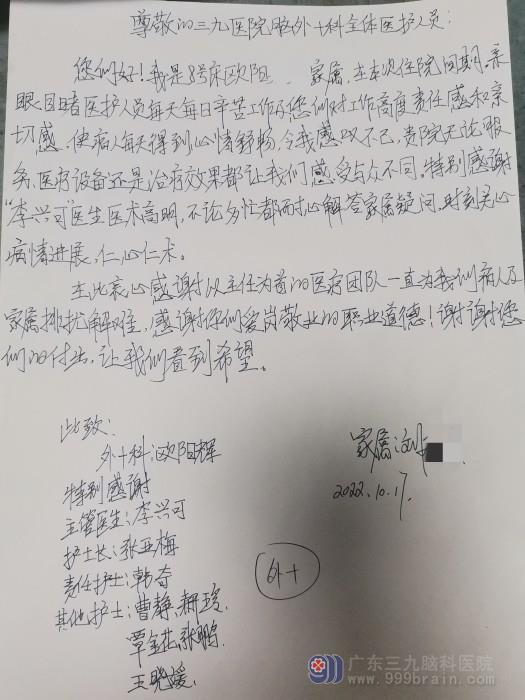 尊敬的三九医院脑外十科全体医护人员:
您们好!我是8号床欧阳 家属,在本次住院间期,亲
眼目睹医护人员每天每日辛苦工作及您们对工作高度责任感和亲
切感,使病人每天得到心情舒畅,令我感叹不已,贵院无论服
务、医疗设备还是治疗效果都让我们感受与众不同。特别感谢
"李兴可"医生医术高明,不论多忙都耐心解答家属疑问,时刻关心
病情进展,仁心仁术。
在此衷心感谢以主任为首的医疗团队一直为我们病人及
家属排扰解难,感谢你们爱岗敬业的职业道德!谢谢您
们的付出,让我们看到希望。
此致:
外十科:欧阳辉
特别感谢
主管医生:李兴可
护士长:张亚梅
责任护士:韩奇
其他护士:曹静,
覃金花,张鹏
王晓媛.
家属:刘
2022.10.17.
外十
广东三九脑科医院
www.999brain.com